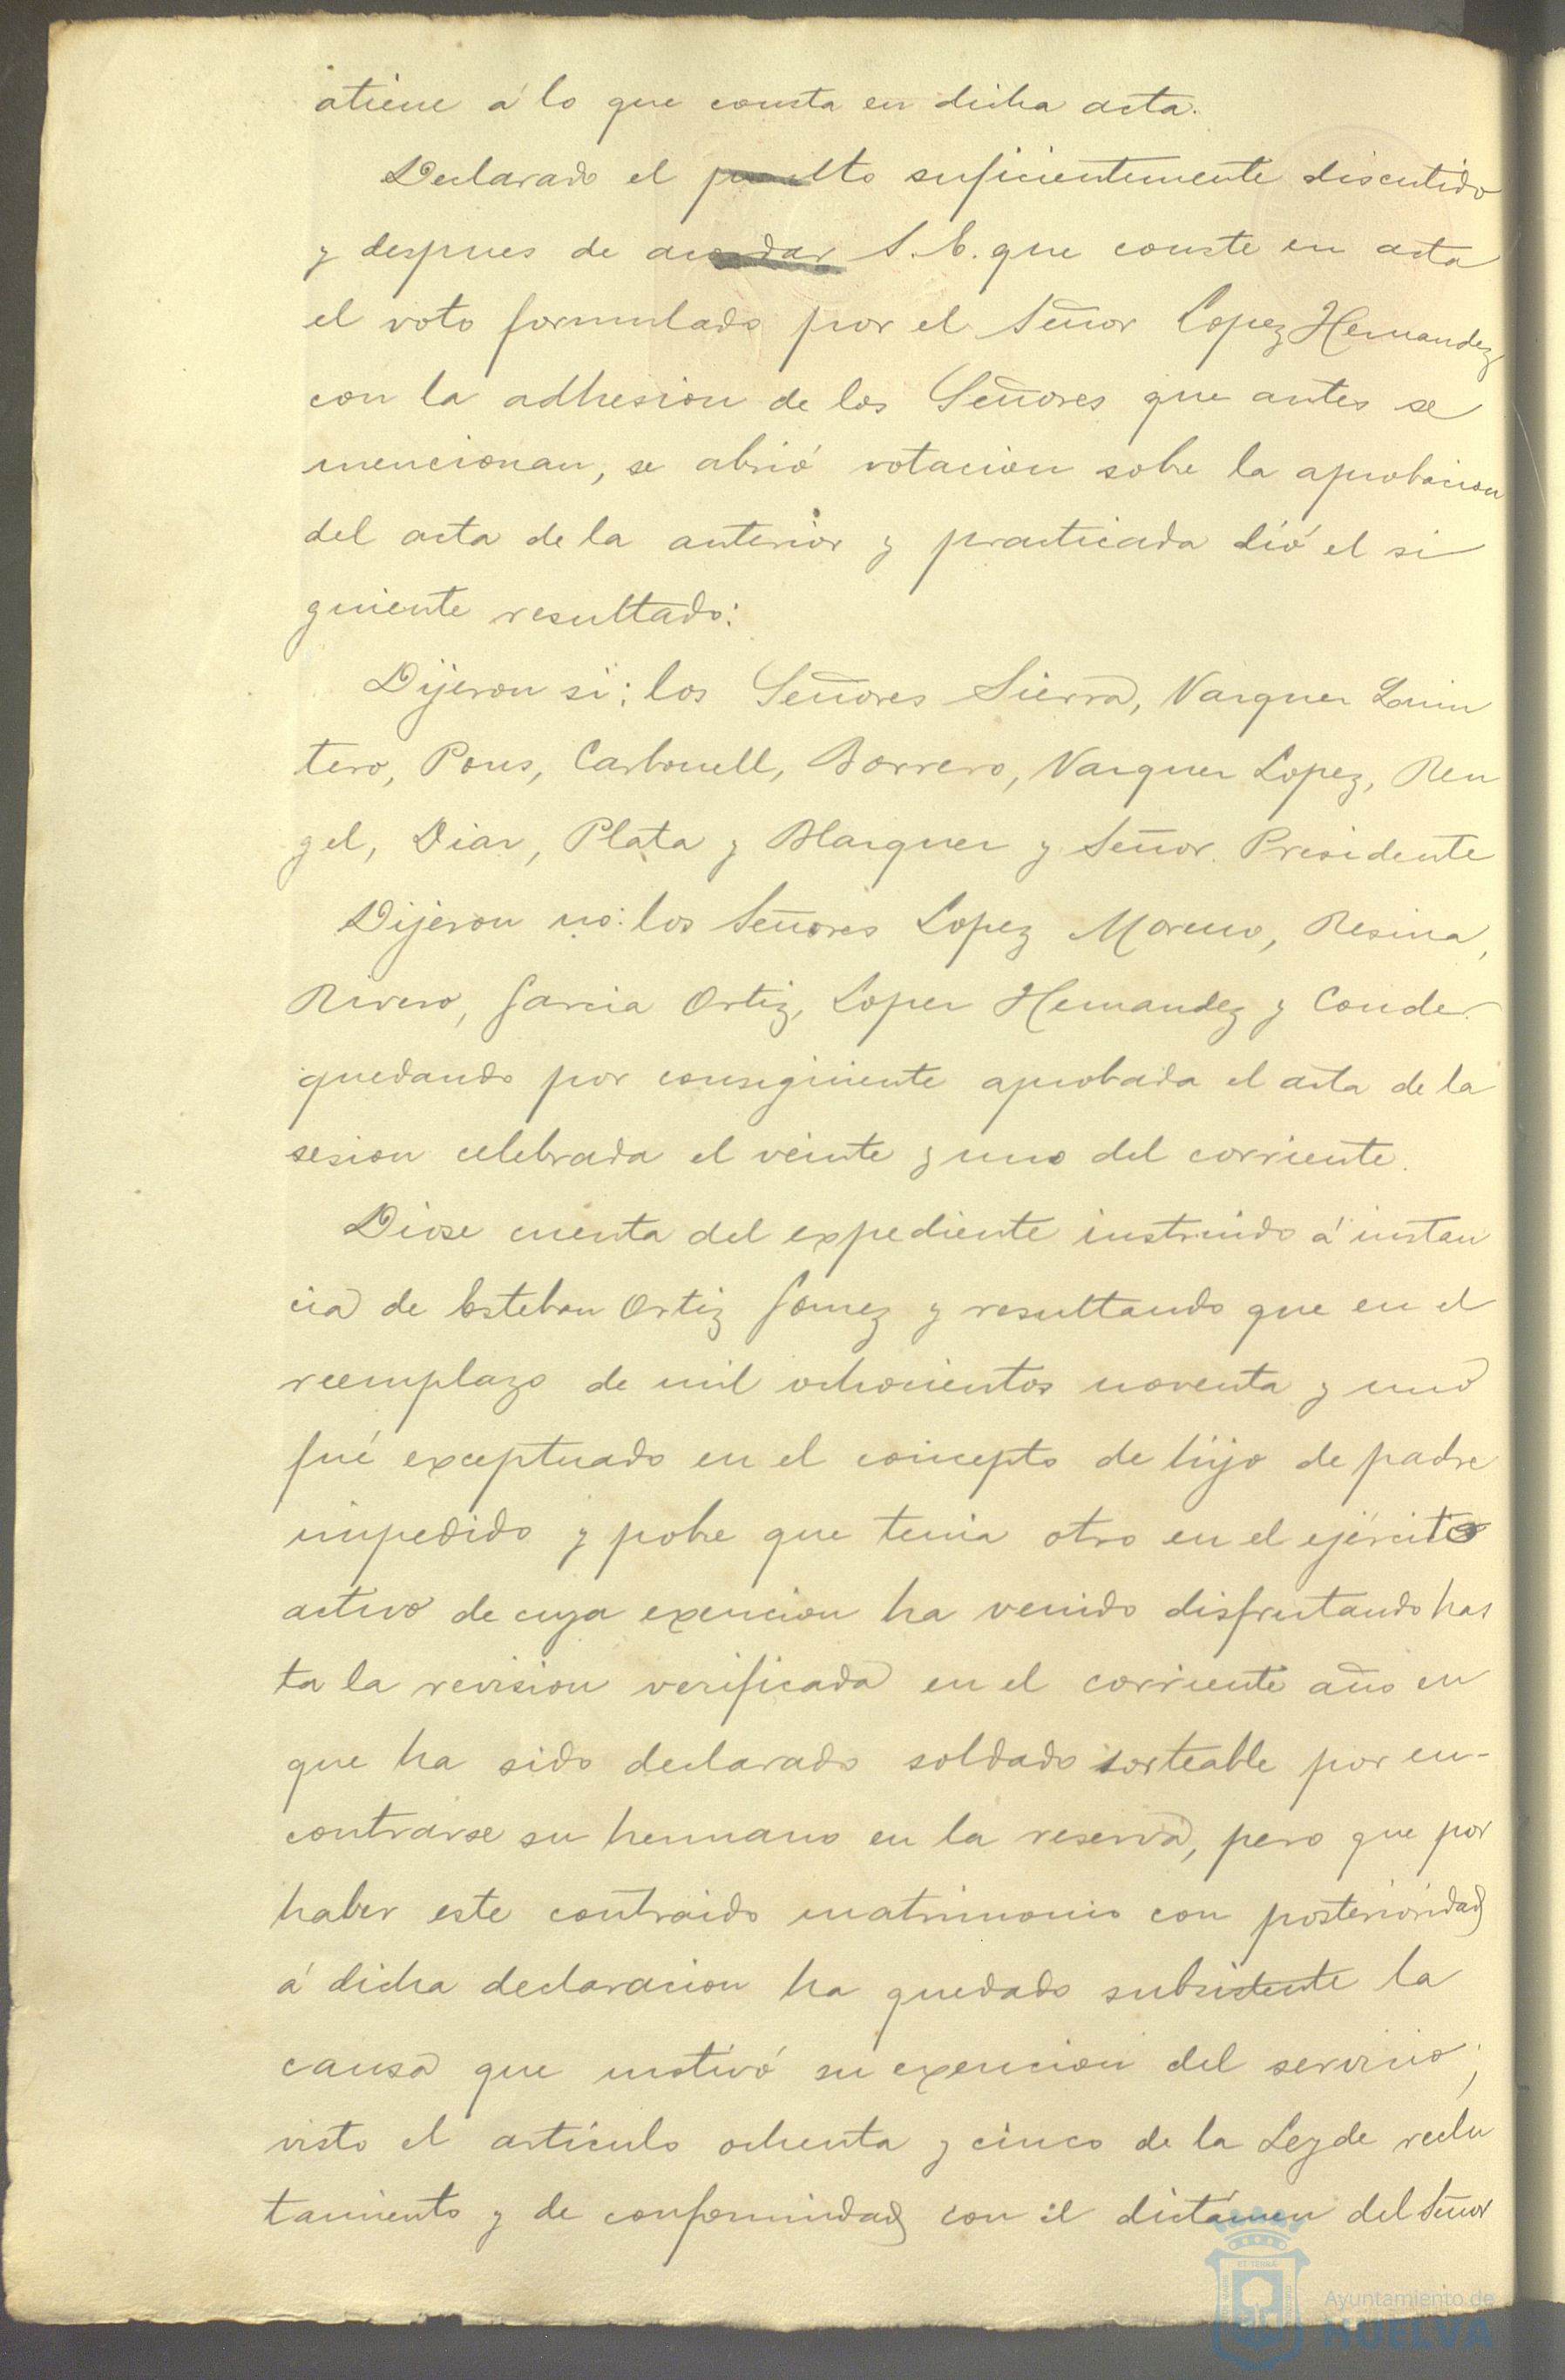 atiene á lo que consta en dicha acta.
Declarado el punto suficientemente discutido
y despues de acordar S. E. que conste en acta
el voto formulado por el Señor Lopez Hernandez
con la adhesion de los Señores que antes se
mencionan, se abrió votacion sobre la aprobacion
del acta de la anterior y practicada dió el si
guiente resultado:
Dijeron si: los Señores Sierra, Vazquez Quin
tero, Pons, Carbonell, Borrero, Vazquez Lopez, Ren
gel, Diaz, Plata y Marquez y Señor Presidente
Dijeron no: los Señores Lopez Moreno, Resina,
Rivero, Garcia Ortiz, Lopez Hernandez y Conde.
quedando por consiguiente aprobada el acta de la
sesion celebrada el veinte y uno del corriente.
Diose cuenta del expediente instruido á instan
cia de Esteban Ortiz Gomez y resultando que en el
reemplazo de mil ochocientos noventa y uno
fué exceptuado en el concepto de hijo de padre
impedido y pobre que tenia otro en el ejército
activo de cuya exencion ha venido disfrutando has
ta la revision verificada en el corriente año en
que ha sido declarado soldado sorteable por en-
contrarse su hermano en la reserva, pero que por
haber este contraido matrimonio con posterioridad
á dicha declaracion ha quedado subsistente la
causa que motivó su exencion del servicio;
visto el artículo ochenta y cinco de la Ley de reclu
tamiento y de conformidad con el dictámen del Señor
Ayuntamiento de
HUELVA